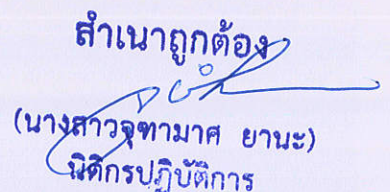 สำเนาถูกต้อง
(นางสาวจุฑามาศ ยานะ)
นิติกรปฏิบัติการ